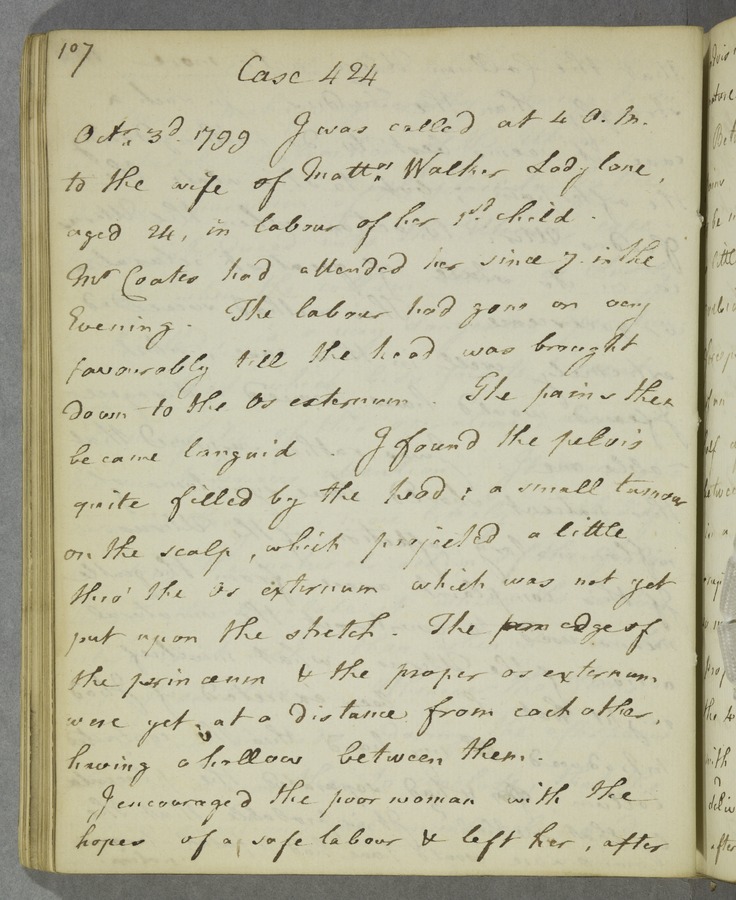 107
Case 424
Octr. 3d. 1799 I was called at 4 A.M.
to the wife of Mattw. Walker Lady lane,
aged 24, in labour of her 1st. child.
Mr Coates had attended her since 7. in the
Evening. The labour had gone on very
favourably till the head was brought
down to the Os externum. The pains then
became languid. I found the pelvis
quite filled by the head; a small tumour
on the scalp, which projected a little
thro' the os externum which was not yet
put upon the stretch. The edge of
the perinæum & the proper os externum
were yet at a distance from each other,
having a hollow between them.
I encouraged the poor woman with the
hopes of a safe labour & left her, after